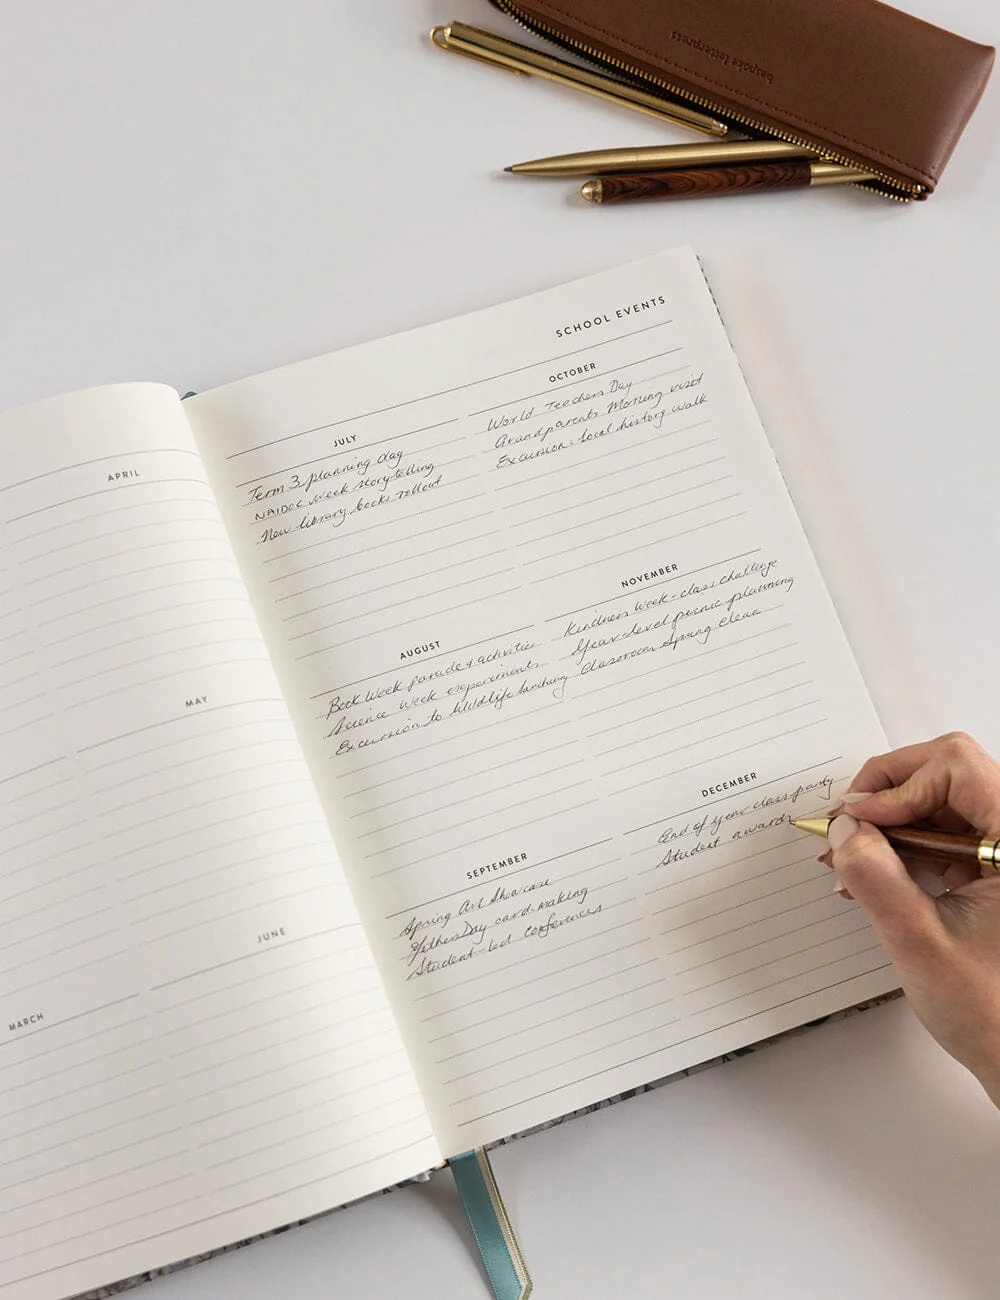 bespoke letterpress
APRIL
MAY
JUNE
MARCH
SCHOOL EVENTS
JULY
Term 3 planning day
NAIDOC week storytelling
New library books rollout
AUGUST
Book Week parade & activities
Science Week experiments
Excursion to Wildlife Sanctuary
SEPTEMBER
Spring Art Showcase
Fathers Day card-making
Student led conferences
OCTOBER
World Teachers Day
Grandparents Morning visit
Excursion: local history walk
NOVEMBER
Kindness Week - class challenge
Year-level picnic planning
Classroom Spring clean
DECEMBER
End of year class party
Student awards